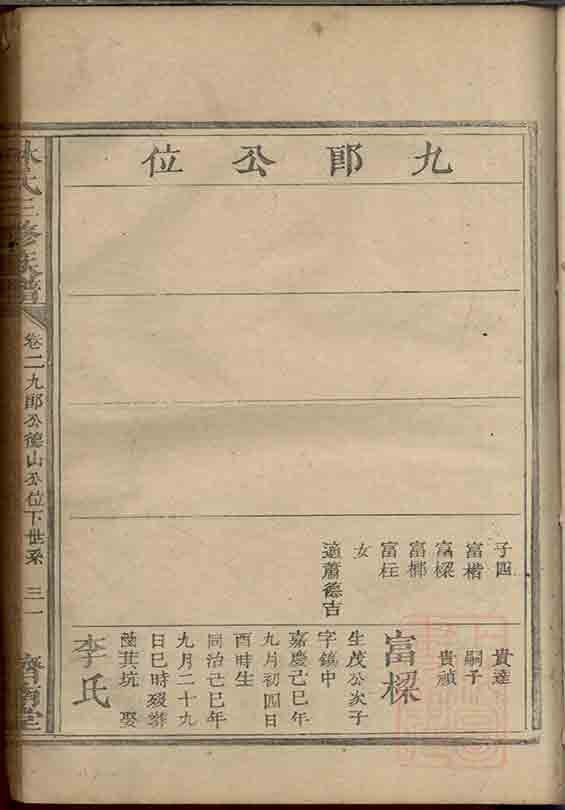 九郎公位
子四
富楷
富樑
富榔
富枉
女
適蕭德吉
貴達
嗣子
貴禎
富樑
生茂公次子
字鎬中
嘉慶己巳年
九月初四日
酉時生
同治己巳年
九月二十九
日巳時歿葬
茵其坑 娶
李氏
林氏三修族譜
卷二九郎公德山公位下世系
三一
濟南堂